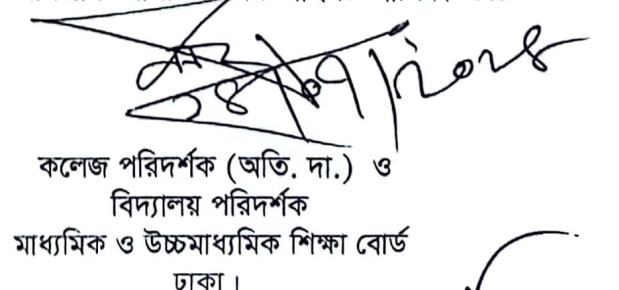 কলেজ পরিদর্শক (অতি. দা.) ও
বিদ্যালয় পরিদর্শক
মাধ্যমিক ও উচ্চমাধ্যমিক শিক্ষা বোর্ড
ঢাকা।